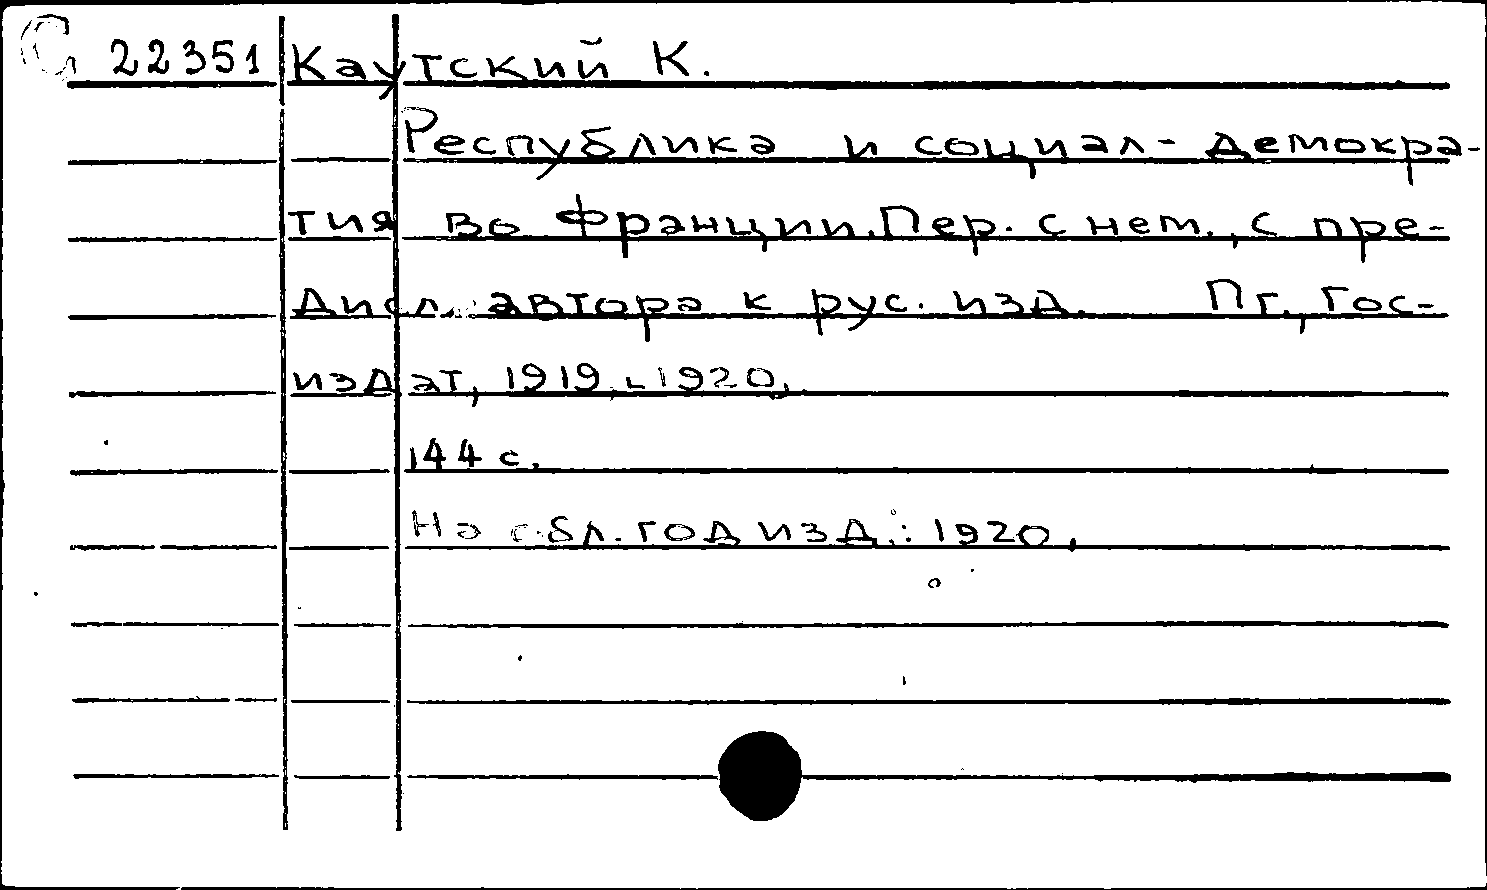 С 22351 Каутский К.
Республика и социал-демокра-
тия во Франции. Пер. с нем., с пре-
дисл. автора к рус. изд. Пг., Гос-
издат, 1919 1920,
144 с.
На обл. год изд.: 1920.